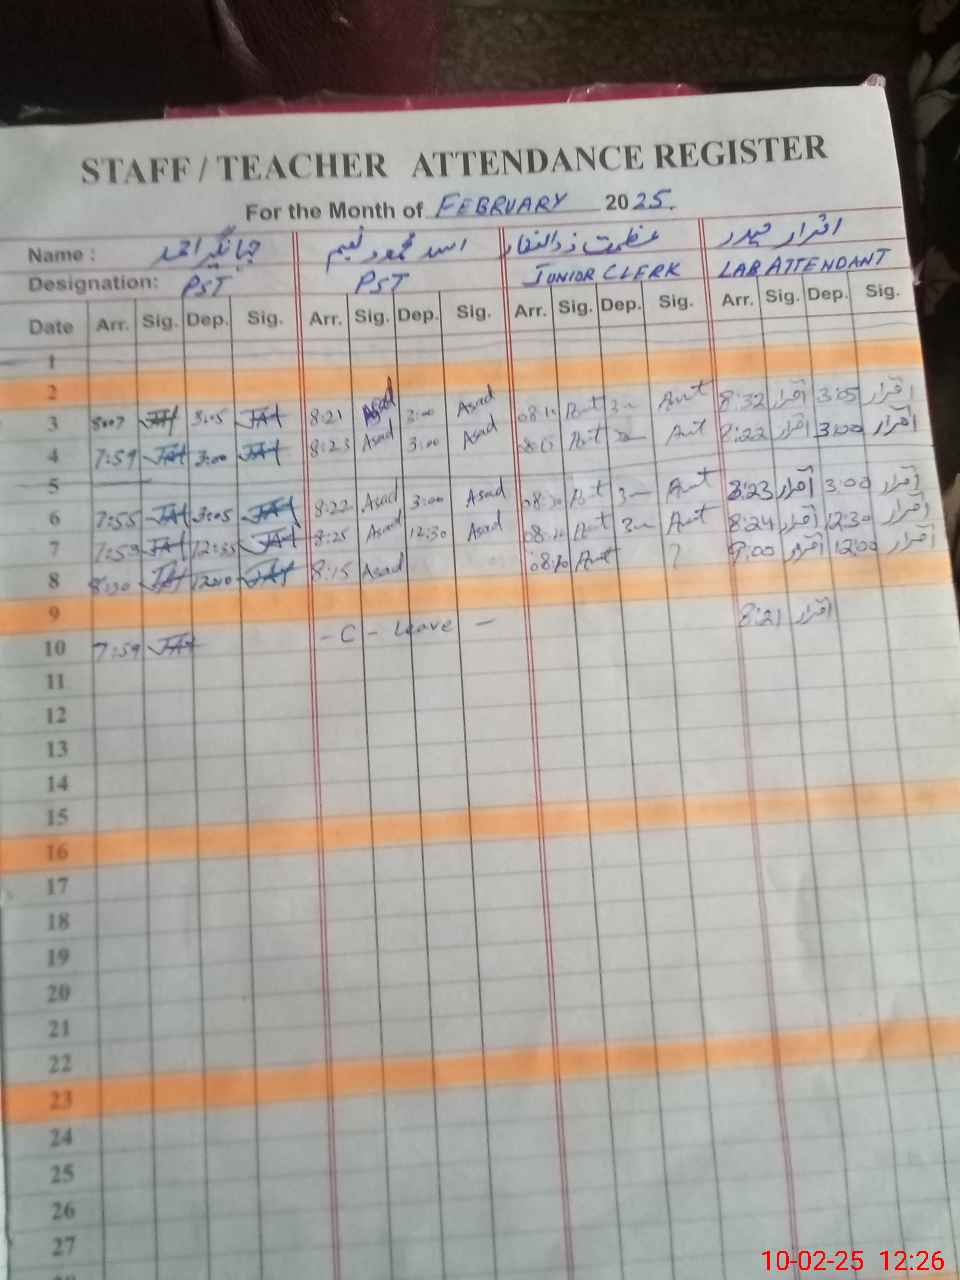 STAFF / TEACHER ATTENDANCE REGISTER
For the Month of FEBRUARY 2025.
Name : جہانگیر احمد اسد محمود نعیم عظمت ذوالفقار اقرار حیدر
Designation: PST PST JUNIOR CLERK LAB ATTENDANT
Date Arr. Sig. Dep. Sig. Arr. Sig. Dep. Sig. Arr. Sig. Dep. Sig. Arr. Sig. Dep. Sig.
1
2
3 8:07 3:05 8:21 Asad 3:00 Asad 8:32 اقرار 3:05 اقرار
4 7:59 3:00 8:23 Asad 3:00 Asad 8:22 اقرار 3:00 اقرار
5
6 7:55 3:05 8:22 Asad 3:00 Asad 8:23 اقرار 3:00 اقرار
7 7:59 12:35 8:25 Asad 12:30 Asad 8:24 اقرار 12:30 اقرار
8 8:15 Asad ? 9:00 اقرار 12:00 اقرار
9
10 7:59 - C - Leave - 8:21 اقرار
11
12
13
14
15
16
17
18
19
20
21
22
23
24
25
26
27
10-02-25 12:26